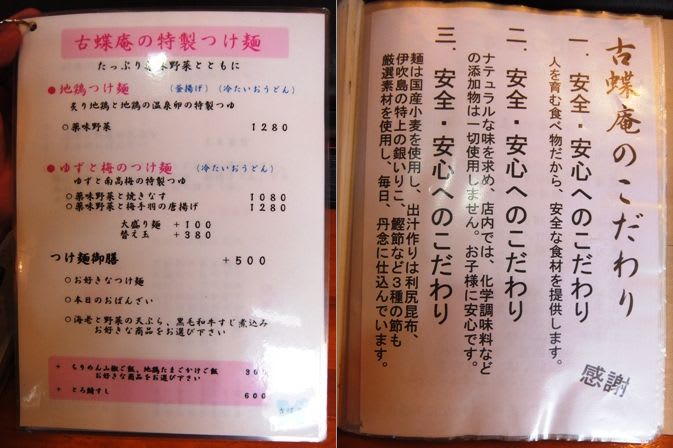 古蝶庵の特製つけ麺
たっぷり薬味野菜とともに
●地鶏つけ麺 (釜揚げ) (冷たいおうどん)
炙り地鶏と地鶏の温泉卵の特製つゆ
○薬味野菜 1280
●ゆずと梅のつけ麺 (冷たいおうどん)
ゆずと南高梅の特製つゆ
○薬味野菜と焼きなす 1080
○薬味野菜と梅手羽の唐揚げ 1280
大盛り麺 +100
替え玉 +380
つけ麺御膳 +500
○お好きなつけ麺
○本日のおばんざい
○海老と野菜の天ぷら、黒毛和牛すじ煮込み
お好きな商品をお選び下さい
+ ちりめん山椒ご飯、地鶏たまごかけご飯
お好きな商品をお選び下さい
+ とろ鯖すし 600
古蝶庵のこだわり
一．安全・安心へのこだわり
人を育む食べ物だから、安全な食材を提供します。
二．安全・安心へのこだわり
ナテュラルな味を求め、店内では、化学調味料など
の添加物は一切使用しません。お子様に安心です。
三．安全・安心へのこだわり
麺は国産小麦を使用し、出汁作りは利尻昆布、
伊吹島の特上の銀いりこ、鰹節など3種の節も
厳選素材を使用し、毎日、丹念に仕込んでいます。
感謝